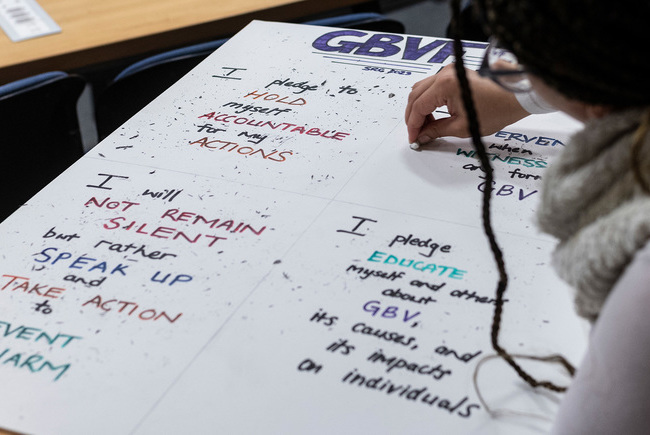 GBVF
SRC 2023
I pledge to
HOLD
myself
ACCOUNTABLE
for my
ACTIONS
ERVEN
when
WITNESS
any form
GBV
I will
NOT REMAIN
SILENT
but rather
SPEAK UP
and
TAKE ACTION
to
EVENT
HARM
I pledge
EDUCATE
myself and others
about
GBV,
its causes, and
its impacts
on individuals